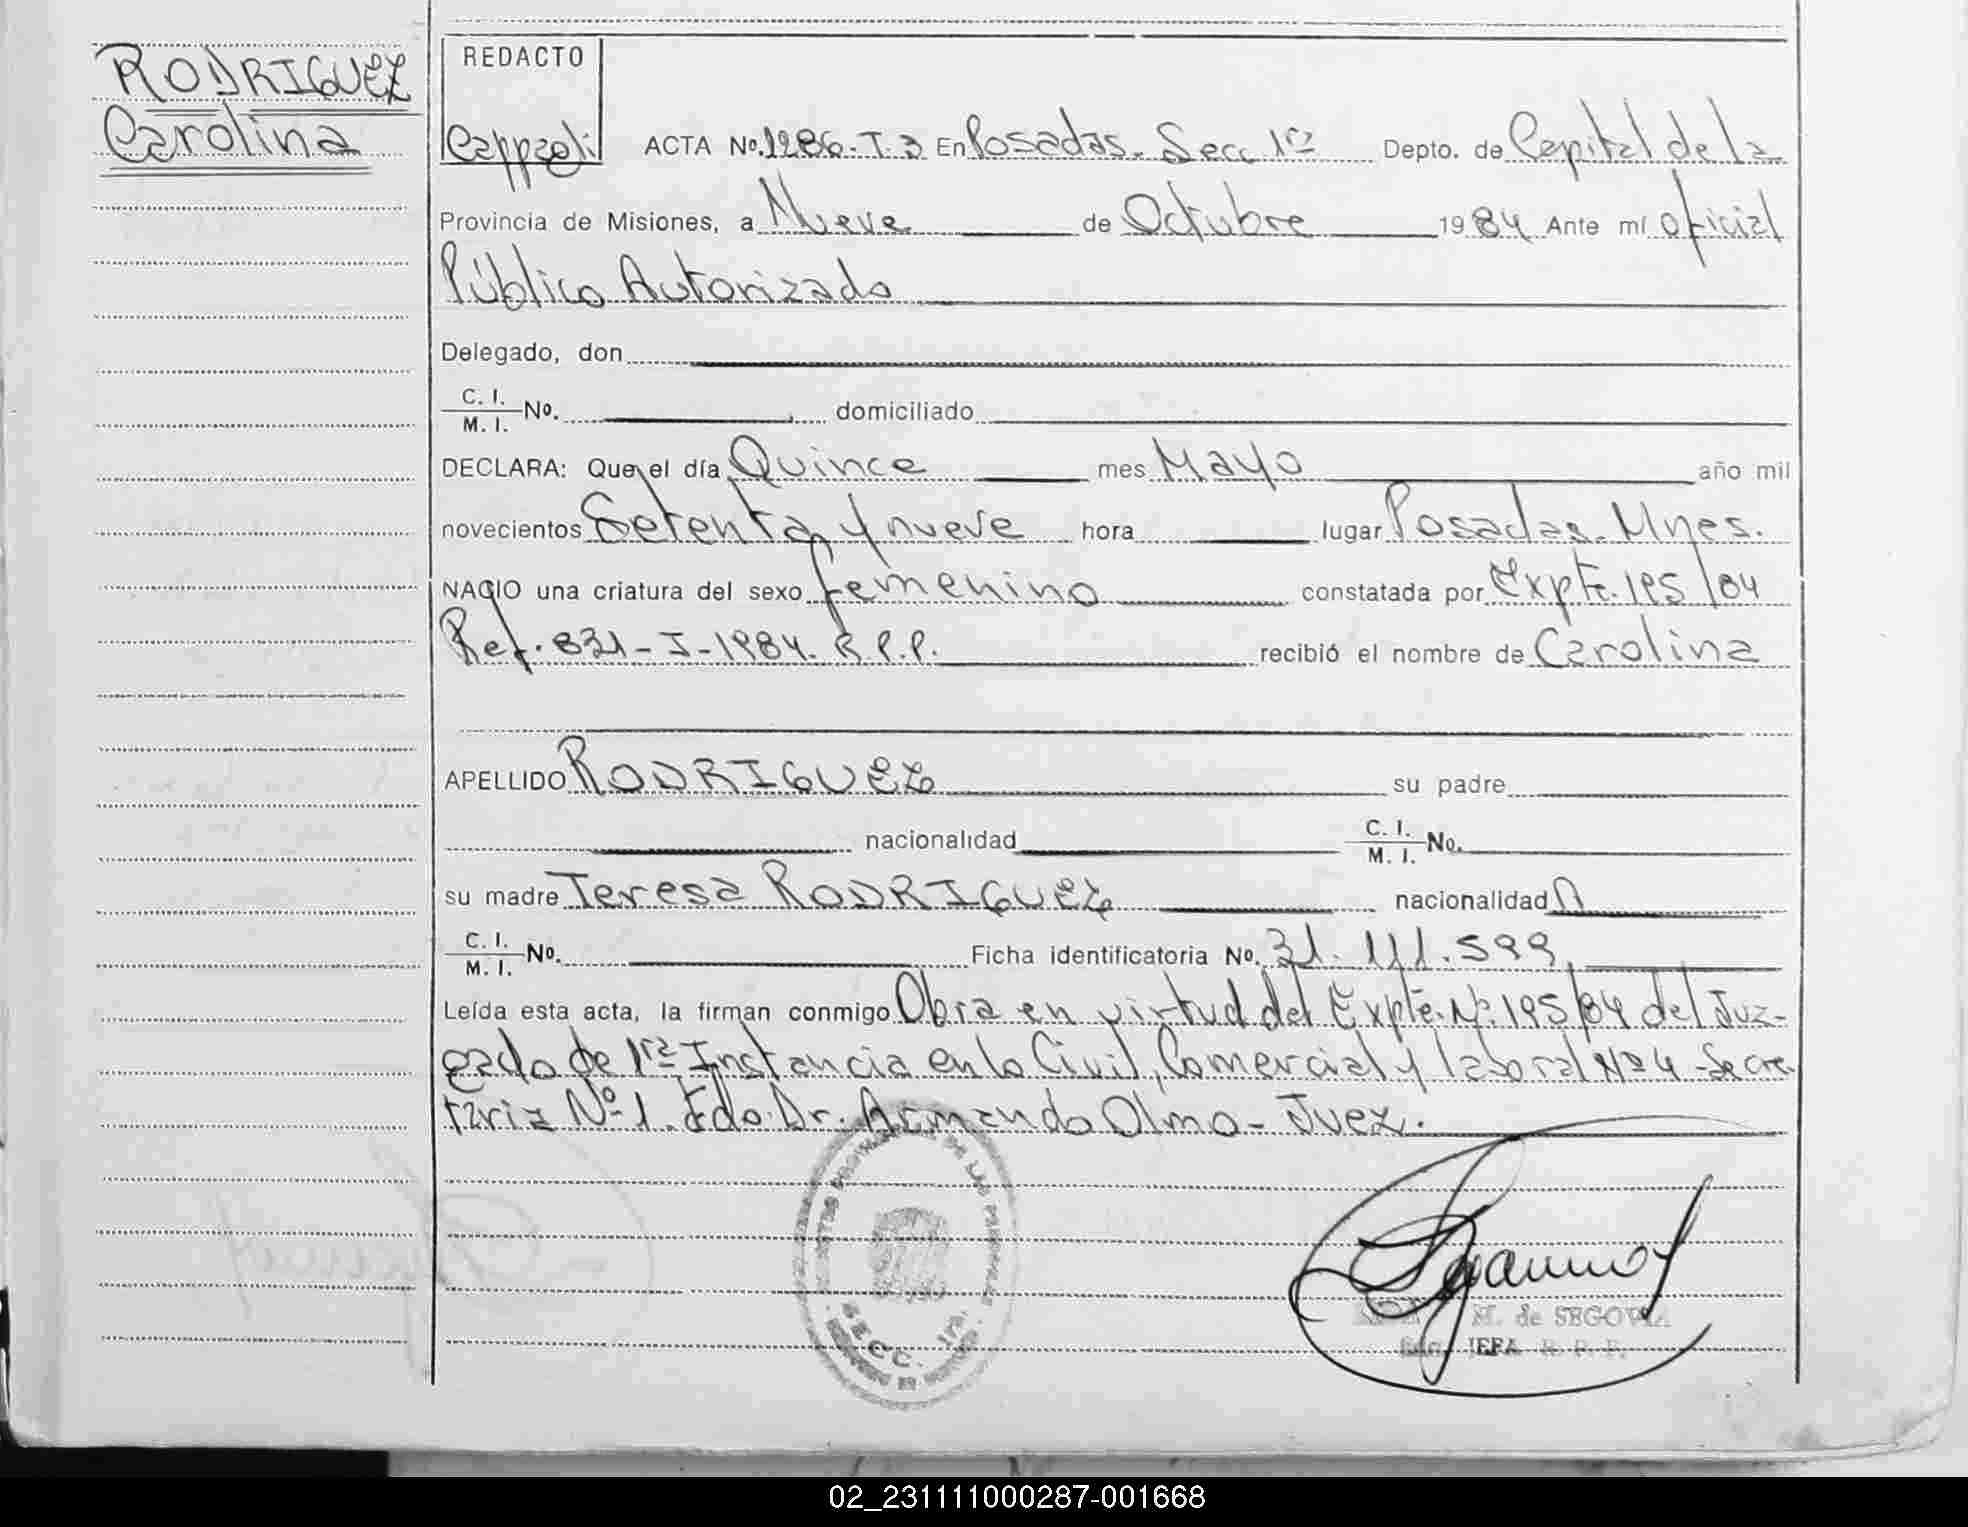 RODRIGUEZ
Carolina
REDACTO
ACTA No. 1286-T.3 En Posadas. Secc 1ra Depto. de Capital de la
Provincia de Misiones, a Nueve de Octubre 1984 Ante mí Oficial
Público Autorizado
Delegado, don
C. I. / M. I. No. domiciliado
DECLARA: Que el día Quince mes Mayo año mil
novecientos Setenta y nueve hora lugar Posadas. Mnes.
NACIO una criatura del sexo femenino constatada por Expte. 195/84
Ref. 831-I-1984. R.P.P. recibió el nombre de Carolina
APELLIDO RODRIGUEZ su padre
nacionalidad C. I. / M. I. No.
su madre Teresa RODRIGUEZ nacionalidad A
C. I. / M. I. No. Ficha identificatoria No. 31.111.599
Leída esta acta, la firman conmigo Obra en virtud del Expte. Nº. 195/84 del Juz-
gado de 1ra Instancia en lo Civil, Comercial y laboral Nº 4 - Secre-
taria Nº 1. Fdo. Dr. Armando Olmo - Juez.
DE LAS PERSONAS
SECC. 1ra.
M. de SEGOVIA
JEFA R. P. P.
02_231111000287-001668